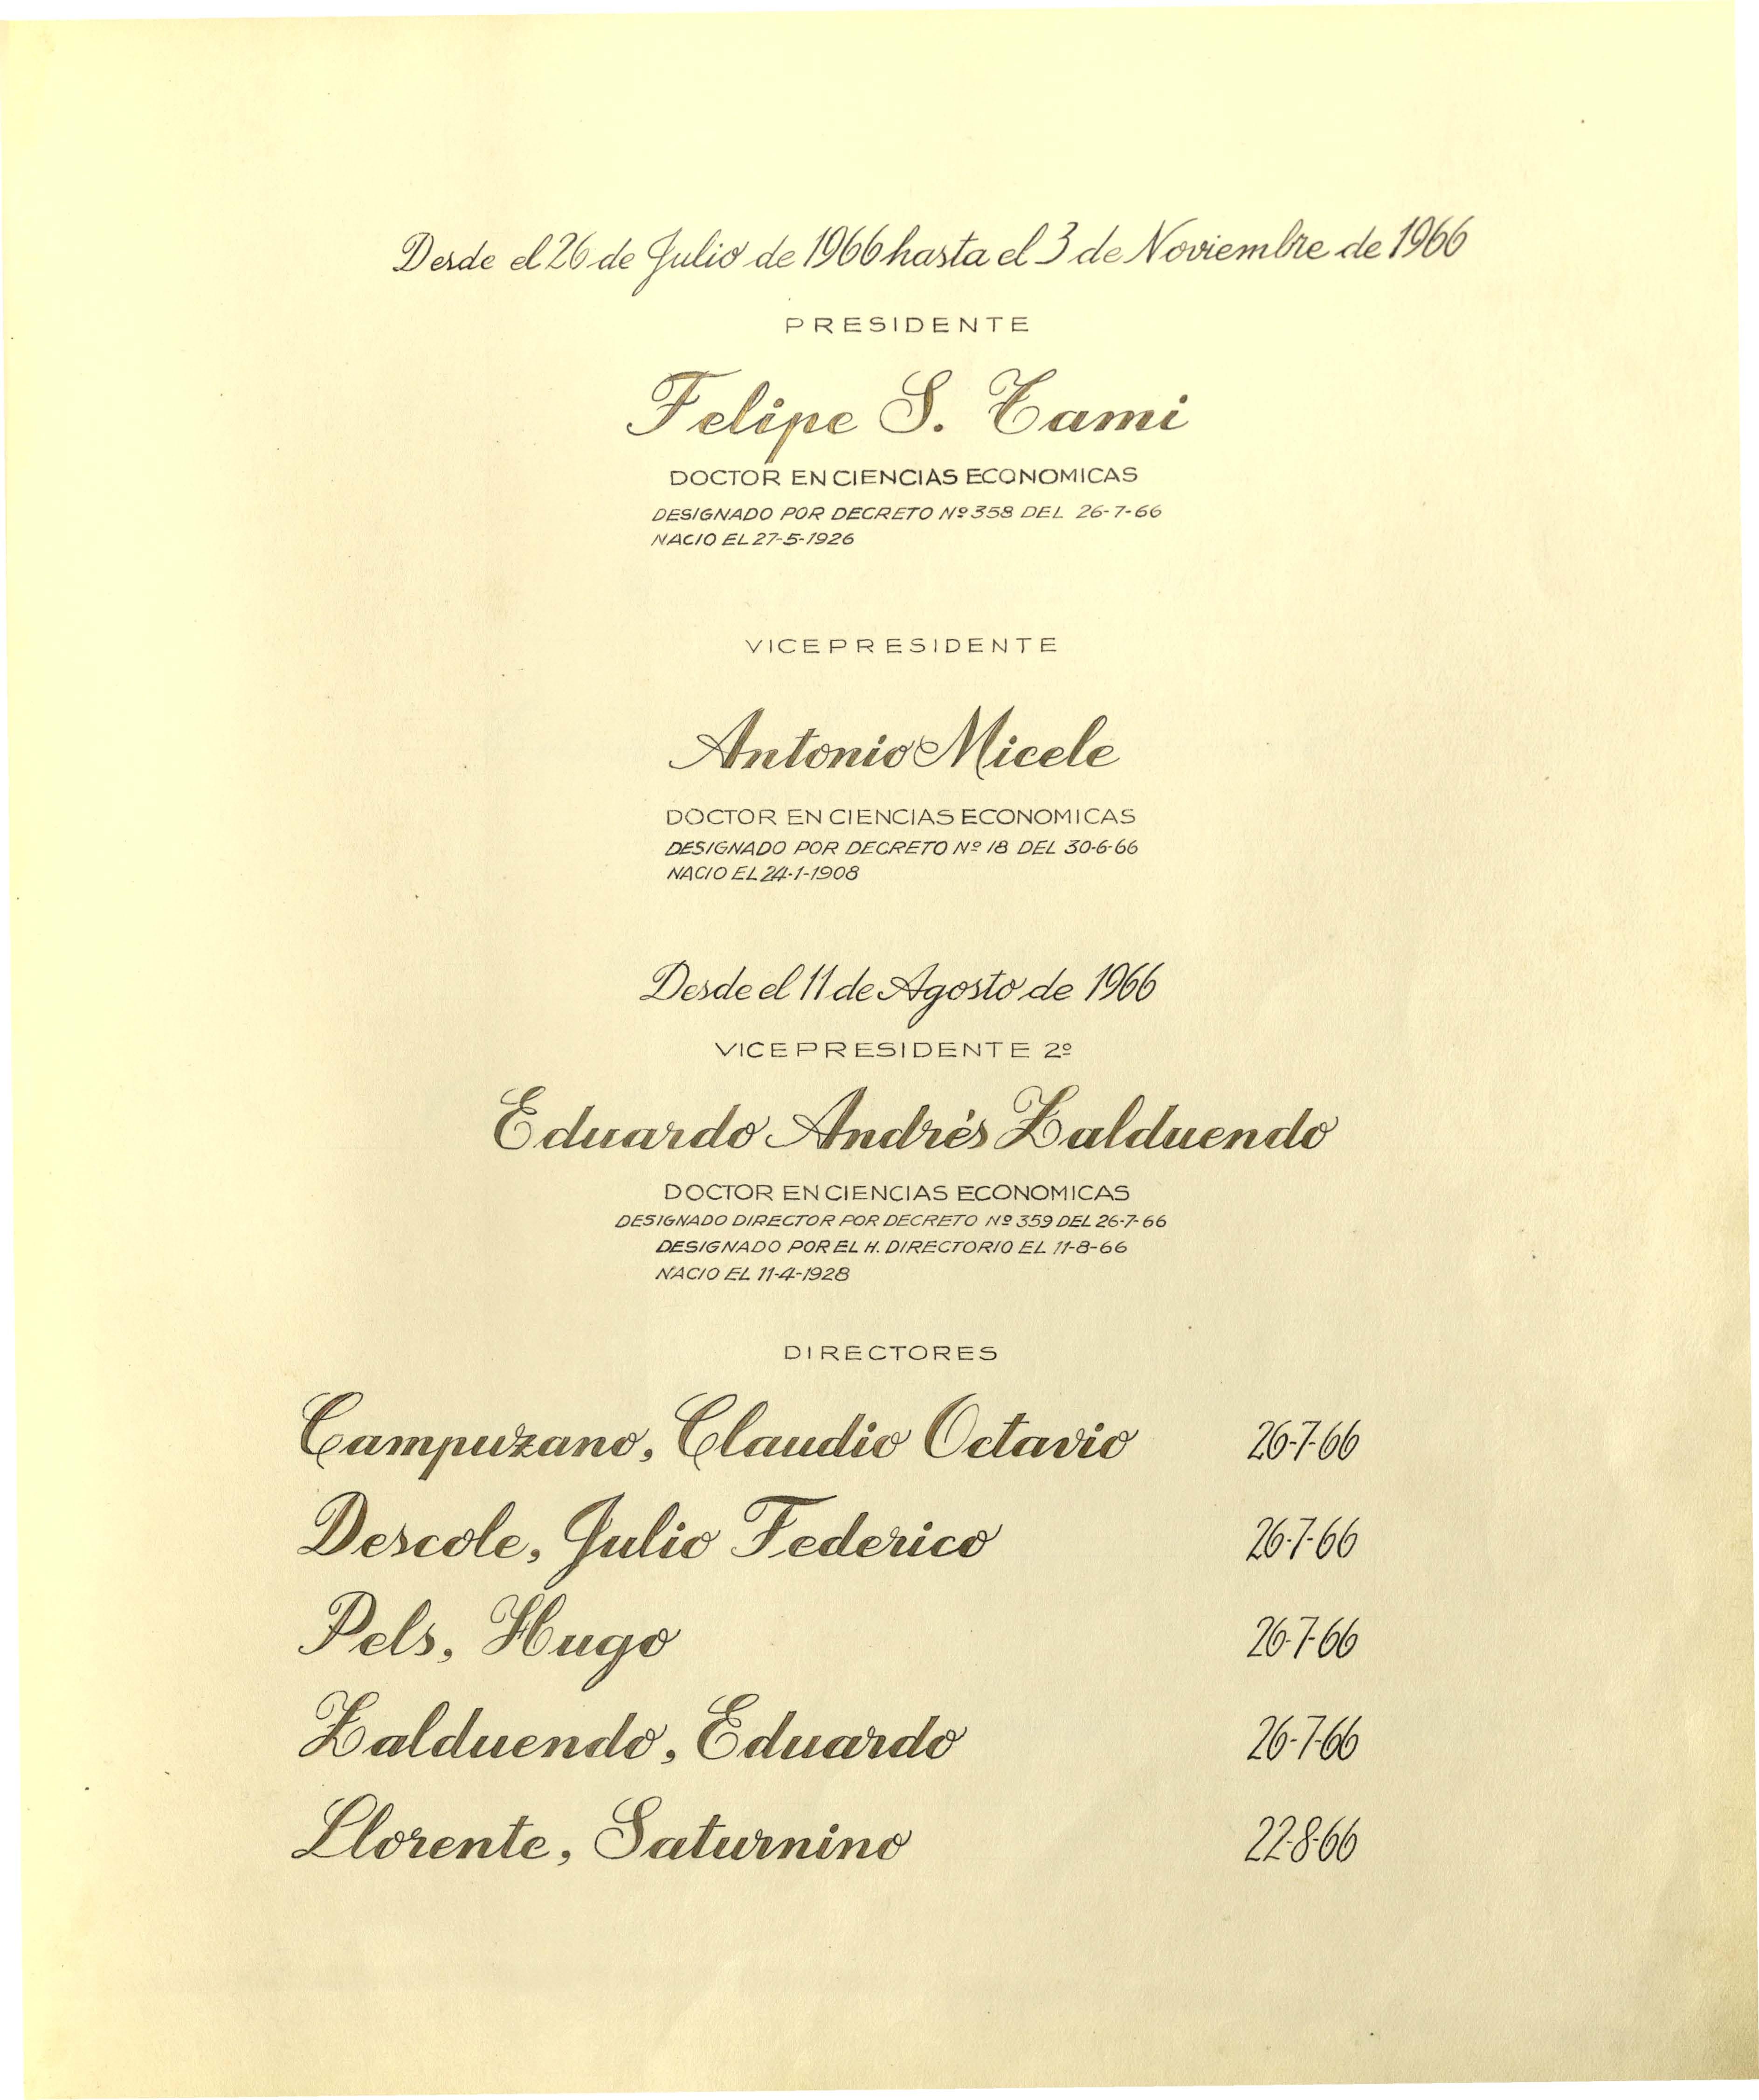 Desde el 26 de Julio de 1966 hasta el 3 de Noviembre de 1966
PRESIDENTE
Felipe S. Tami
DOCTOR EN CIENCIAS ECONOMICAS
DESIGNADO POR DECRETO Nº 358 DEL 26-7-66
NACIO EL 27-5-1926
VICEPRESIDENTE
Antonio Micele
DOCTOR EN CIENCIAS ECONOMICAS
DESIGNADO POR DECRETO Nº 18 DEL 30-6-66
NACIO EL 24-1-1908
Desde el 11 de Agosto de 1966
VICEPRESIDENTE 2º
Eduardo Andrés Zalduendo
DOCTOR EN CIENCIAS ECONOMICAS
DESIGNADO DIRECTOR POR DECRETO Nº 359 DEL 26-7-66
DESIGNADO POR EL H. DIRECTORIO EL 11-8-66
NACIO EL 11-4-1928
DIRECTORES
Campuzano, Claudio Octavio 26-7-66
Descole, Julio Federico 26-7-66
Pels, Hugo 26-7-66
Zalduendo, Eduardo 26-7-66
Llorente, Saturnino 22-8-66